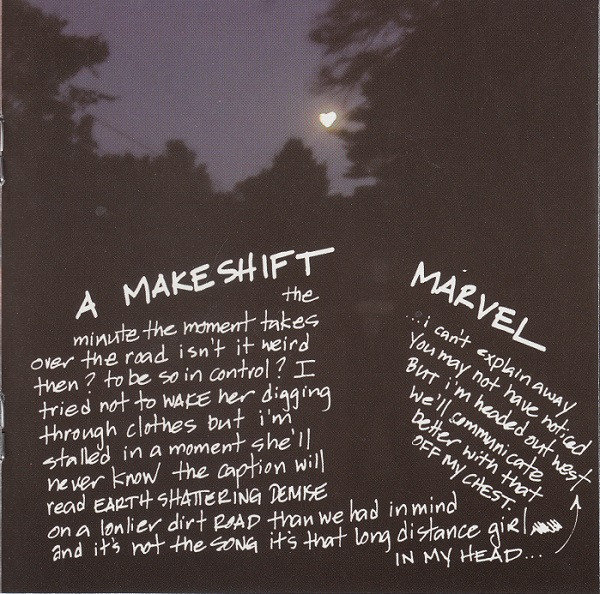 A MAKESHIFT
the
minute the moment takes
over the road isn't it weird
then? to be so in control? I
tried not to WAKE her digging
through clothes but i'm
stalled in a moment she'll
never know the caption will
read EARTH SHATTERING DEMISE
on a lonlier dirt ROAD than we had in mind
and it's not the SONG it's that long distance girl
IN MY HEAD...
MARVEL
...i can't explain away
You may not have noticed
But i'm headed out west
we'll communicate
better with that
OFF MY CHEST.